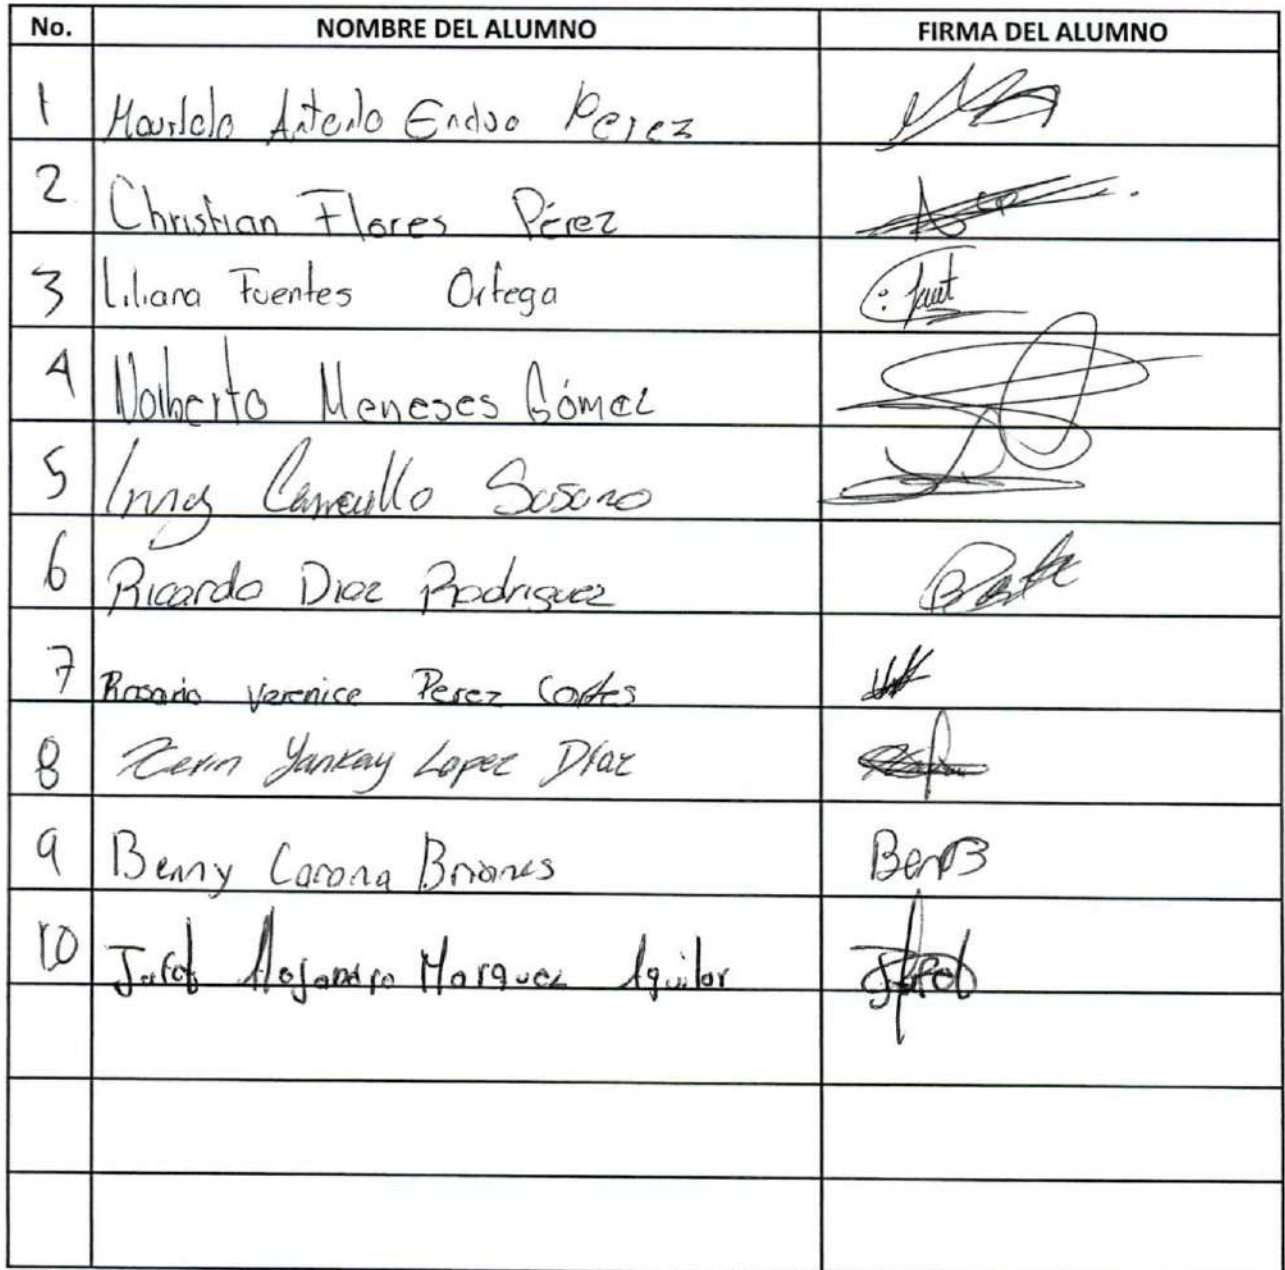 No. NOMBRE DEL ALUMNO FIRMA DEL ALUMNO
1 Perez
2 Christian Flores Pérez
3 Liliana Fuentes Ortega
4 Norberto Meneses Gómez
5
6 Ricardo Diaz Rodriguez
7 Rosario Verenice Perez Cortes
8 Yankay Lopez Díaz
9 Benny Corona Briones BenB
10 Alejandro Marquez Aguilar